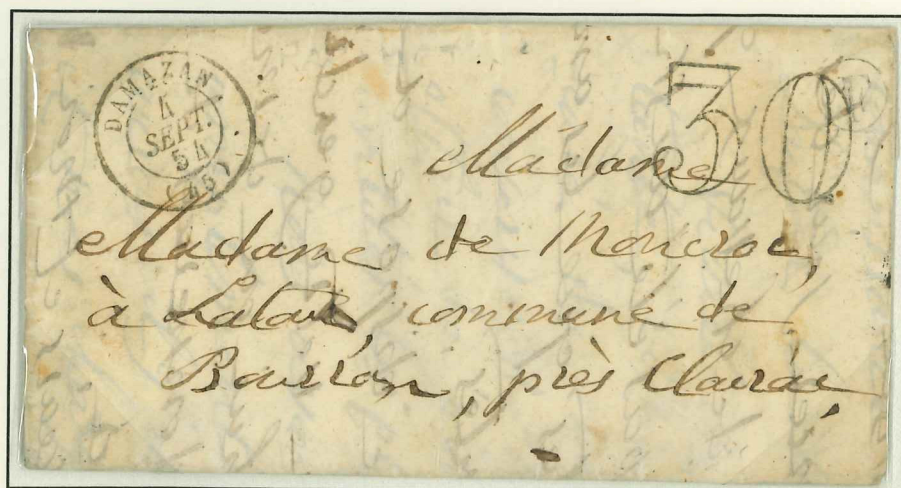 DAMAZAN
4
SEPT.
54
(45)
30
Madame
Madame de Moncroc,
à commune de
près Clairac,